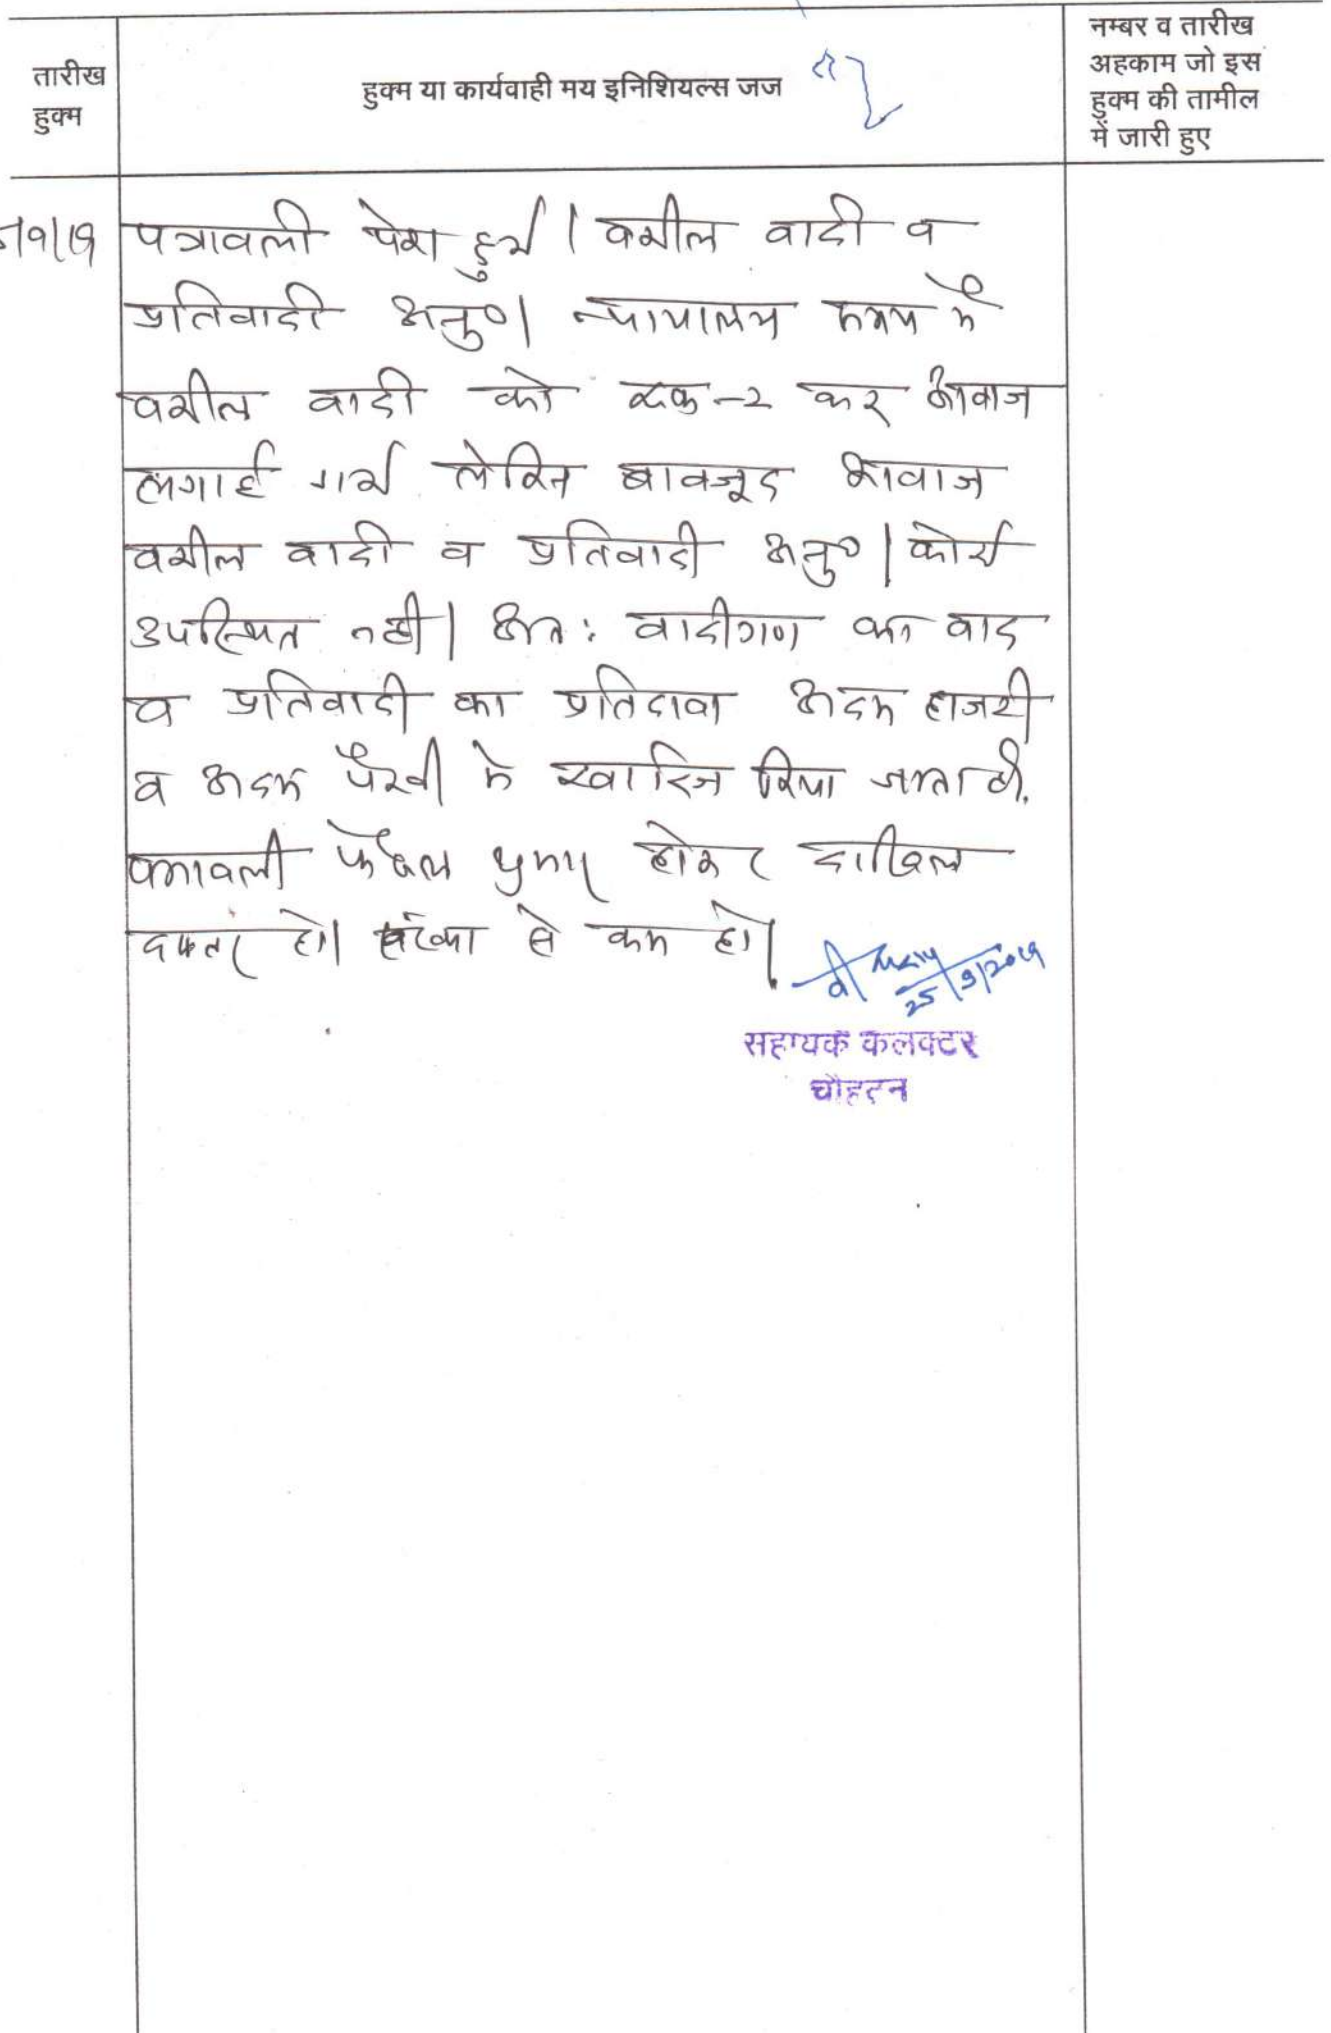 तारीख
हुक्म
हुक्म या कार्यवाही मय इनिशियल्स जज
नम्बर व तारीख
अहकाम जो इस
हुक्म की तामील
में जारी हुए
पत्रावली पेश हुई। वकील वादी व
प्रतिवादी अनु०। न्यायालय समय में
वकील वादी को रुक-२ कर आवाज
लगाई गई लेकिन बावजूद आवाज
वकील वादी व प्रतिवादी अनु०। कोई
उपस्थित नही। अतः वादीगण का वाद
व प्रतिवादी का प्रतिदावा अदम हाजरी
व अदम पैरवी मे खारिज किया जाता है।
पत्रावली फैसल शुमार होकर दाखिल
दफ्तर हो। संख्या से कम हो।
25/9/2019
सहायक कलक्टर
चौहटन